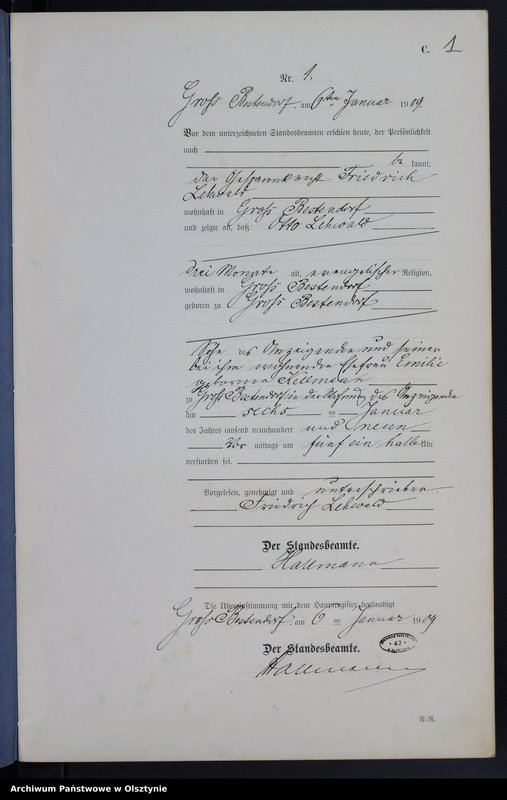 C. 1
Nr. 1.
Groß Bestendorf, am 6ten Januar 1909.
Vor dem unterzeichneten Standesbeamten erschien heute, der Persönlichkeit
nach
be kannt,
der Gespannknecht Friedrich
Lehwald
wohnhaft in Groß Bestendorf
und zeigte an, daß Otto Lehwald
drei Monate alt, evangelischer Religion,
wohnhaft in Groß Bestendorf
geboren zu Groß Bestendorf
Sohn des Anzeigenden und seiner
bei ihm wohnenden Ehefrau Emilie
geborenen
zu Groß Bestendorf in der Wohnung des Anzeigenden
am sechs ten Januar
des Jahres tausend neunhundert und neun
Vor mittags um fünf ein halb Uhr
verstorben sei.
Vorgelesen, genehmigt und unterschrieben.
Friedrich Lehwald
Der Standesbeamte.
Hallmann
Die Übereinstimmung mit dem Hauptregister beglaubigt
Groß Bestendorf, am 6 ten Januar 1909
Der Standesbeamte.
Hallmann
47
N.-R.
Archiwum Państwowe w Olsztynie